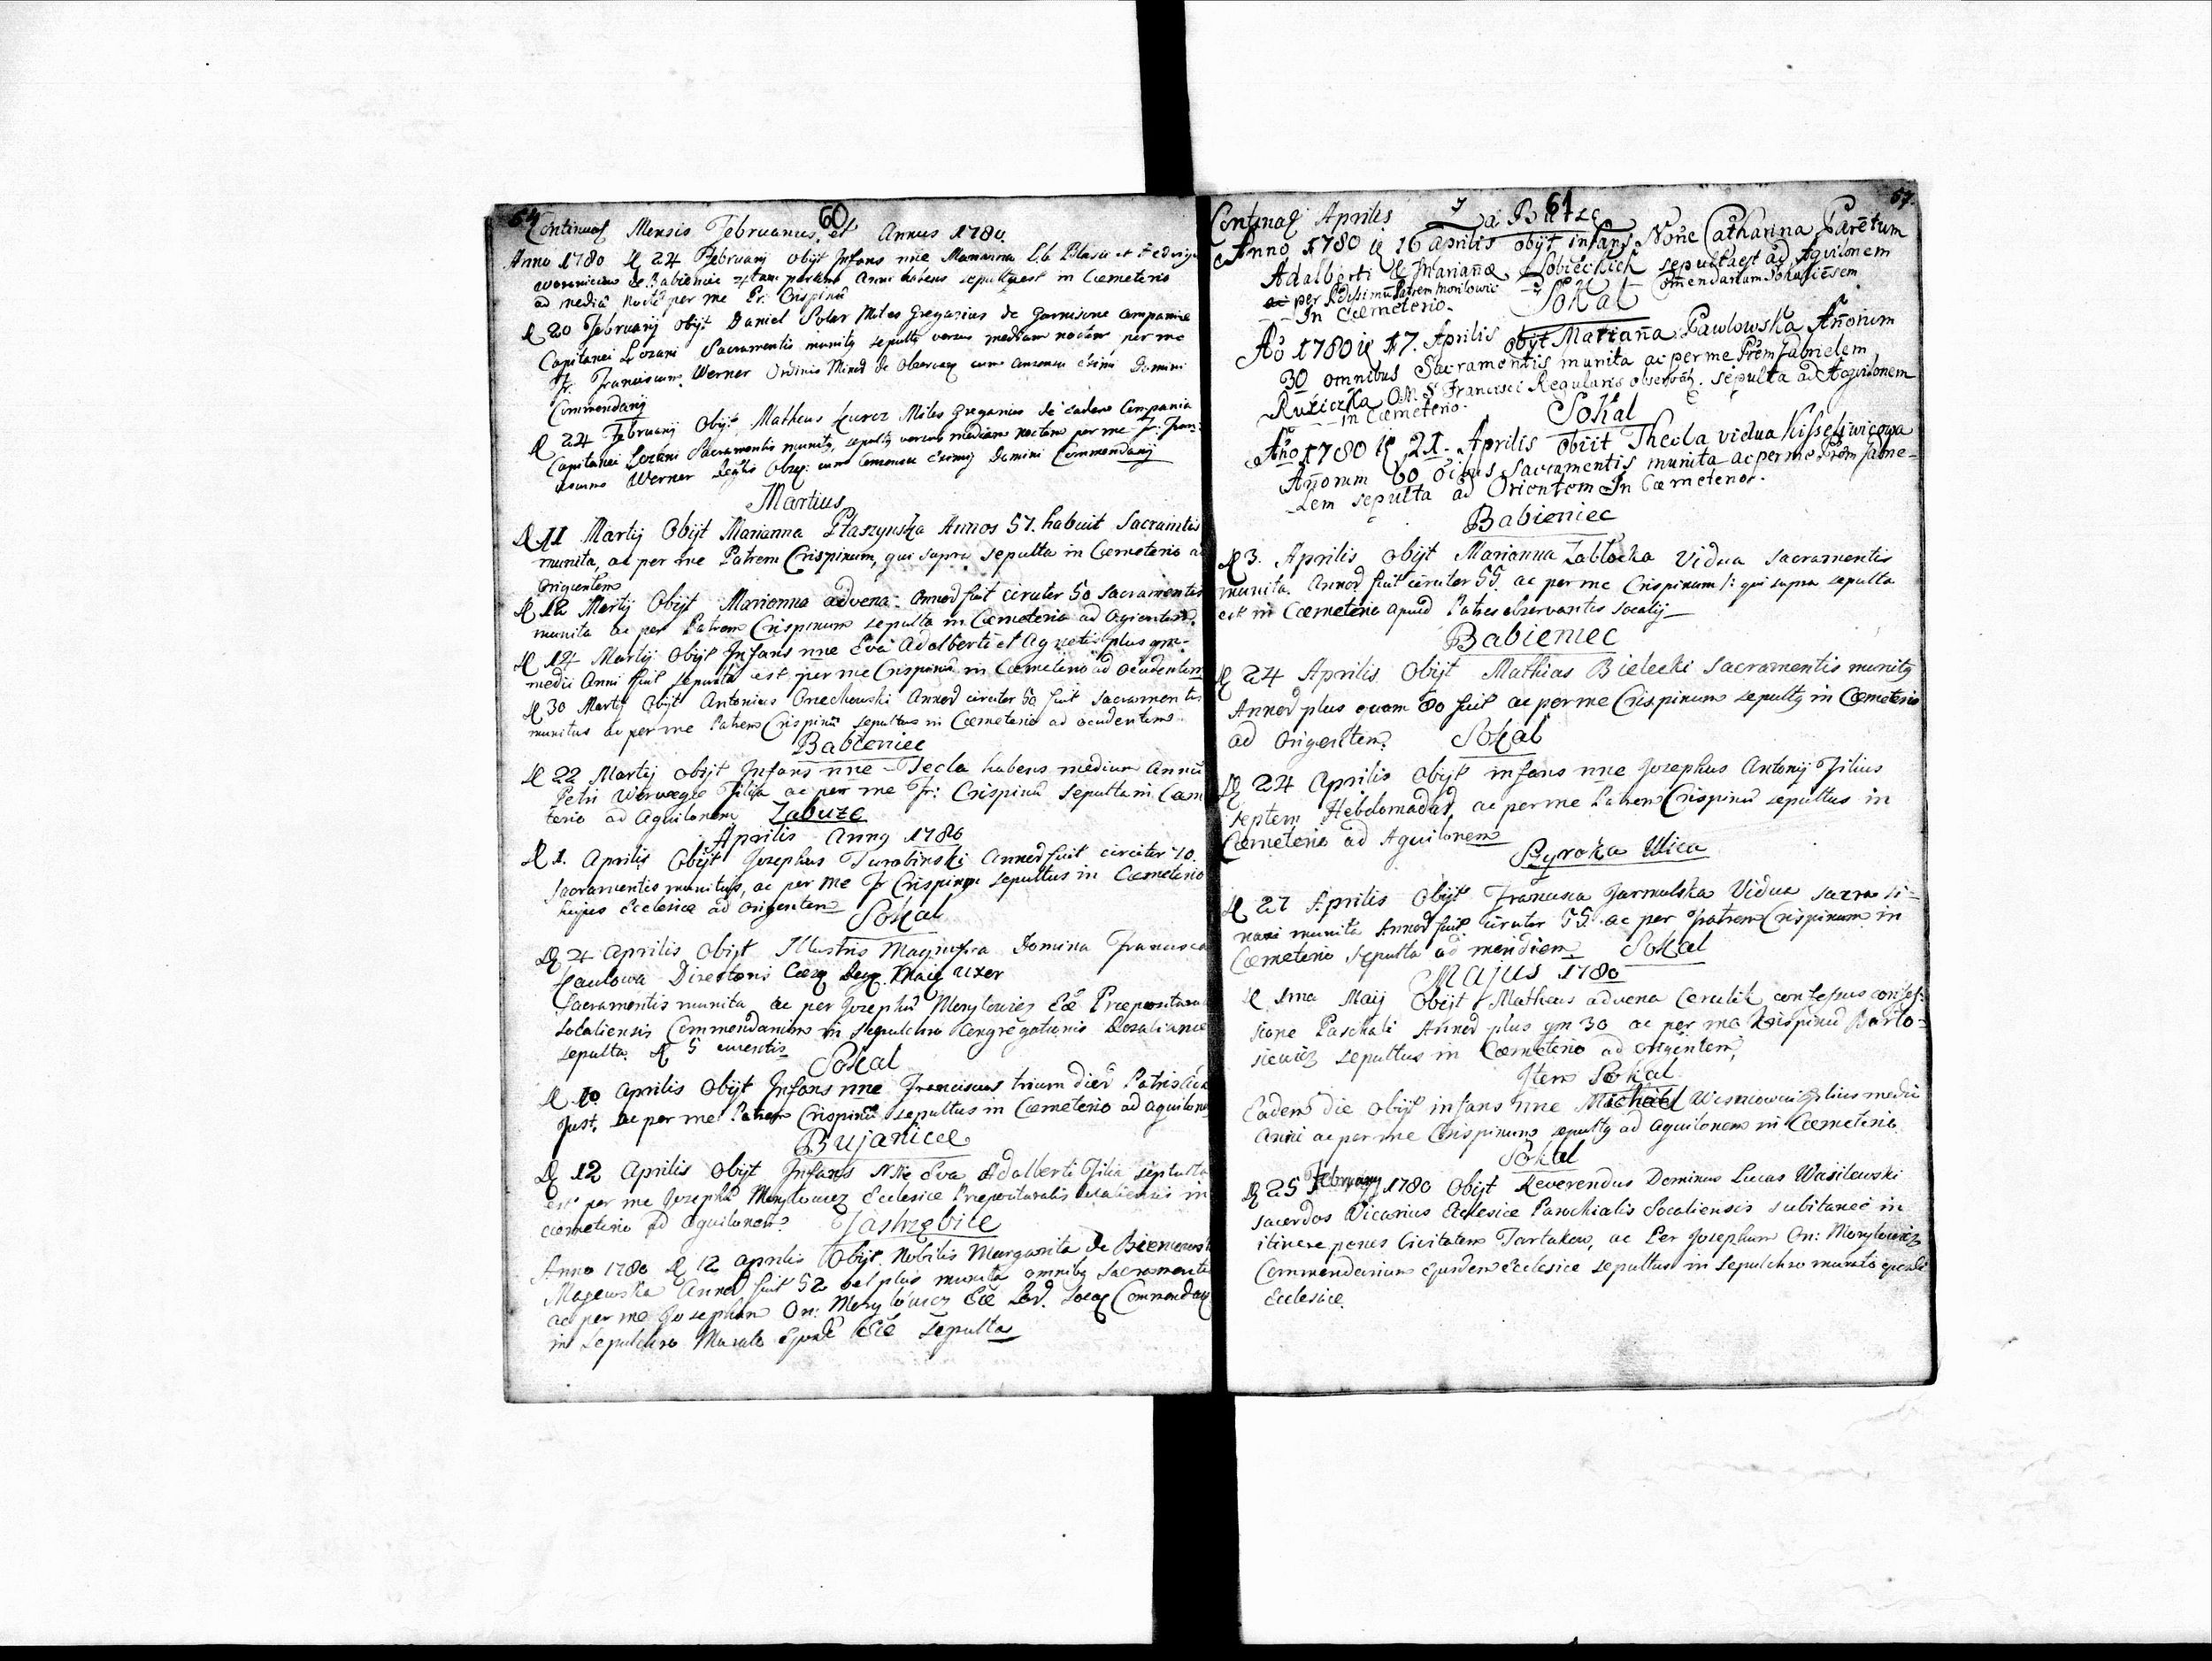 60
Continuat Mensis Februarius et Annus 1780.
Anno 1780 D 24 Februarij obijt Infans nne Marianna L.L. Blasii et Hedvigis
de Babieniec partem Anni habens sepulta est in Cœmeterio
ad mediã Noctẽ per me Fr: Crispinũ
D 20 Februarij obijt Daniel Soler Miles Gregarius de Garnisone Companiæ
Capitanei Lozani Sacramentis munitq sepultq versus mediam noctem per me
Fr. Franciscum Werner Ordinis Minor de Observan cum consensu Domini
Commendarij
D 24 Februarij Obijt Matheus Miles Gregarius de eadem Compania
Capitanei Lozani Sacramentis munitq, sepultq versus mediam noctem per me Fr: Fran-
Werner cum Consensu Domini Commendarij
Martius
D 11 Martij Obijt Marianna Ptaszynska Annos 57. habuit Sacramtis
munita, ac per me Patrem Crispinum, qui supra sepulta in Cœmeterio ad
Orientem
D 12 Martij Obijt Marianna advena Annor fuit circiter 50 Sacramentis
munita ac per Patrem Crispinum sepulta in Cœmeterio ad Orientem
D 14 Martij Obijt Infans nne Eva Adalberti et Agnetis plus qm
medii Anni fuit sepulta est per me Crispinũ in Cœmeterio ad occidentem
D 30 Martij Obijt Antonius Orzechowski Annor circiter 50 fuit Sacramentis
munitus ac per me Patrem Crispinũ sepultus in Cœmeterio ad occidentem
Babieniec
D 22 Martij obijt Infans nne Tecla habens medium Annũ
Petri Filia ac per me Fr: Crispinũ sepulta in Cœm
terio ad Aquilonem Zabuze
Aprilis Annq 1780
D 1. Aprilis Obijt Josephus Turobinski Annor fuit circiter 70.
Sacramentis munitus, ac per me Fr Crispinum sepultus in Cœmeterio
hujus Ecclesiæ ad Orientem Sokal
D 4 Aprilis Obijt Illustris Magnifica Domina Francisca
Paulowa Directoris uxor
Sacramentis munita ac per Josephũ Morylowicz Præpositura
Socaliensis Commendarium in Sepulchro Congregationis Rosalianæ
sepulta. D 5
Sokal
D 10 Aprilis Obijt Infans nne Franciscus trium dier Patris
Just. ac per me Patrem Crispinũ sepultus in Cœmeterio ad aquilonem
Bujanice
D 12 Aprilis Obijt Infans Nne Eva Adalberti Filia sepulta
est per me Josephũ Morylowicz Ecclesiæ Præposituralis Socaliensis in
cœmeterio ad Aquilonem Jastrzębice
Anno 1780 D 12 Aprilis Obijt Nobilis Margarita de
Majewska Annor fuit 52 vel plus munita omnibq Sacramentis
ac per me Josephum On: Morylowicz Commendar
in Sepulchro Murato sepulta
61
57.
Continaq Aprilis Za Butze
Anno 1780 D 16 Aprilis obijt infans Noñe Catharina Parẽtum
Adalberti & Mariañæ Sobieckich sepulta est ad Aquilonem
ac per Patrem Morilowic Comendarium Sokaliẽsem
In Cœmeterio. Sokal
Añ 1780 D 17. Aprilis obijt Mariaña Pawlowska Añorum
30 omnibus Sacramentis munita ac per me Prẽm Gabrielem
Ružiczka O.M. S. Francisci Regularis observãt. sepulta ad Aquilonem
in Cœmeterio. Sokal
Año 1780 D 21. Aprilis obiit Thecla vidua
Añorum 60 oibus Sacramentis munita ac per me Prẽm Gabrie-
lem sepulta ad Orientem In Cœmeterio.
Babieniec
D 3. Aprilis obijt Marianna Zablocka Vidua sacramentis
munita. Annor fuit circiter 55. ac per me Crispinum /: qui supra sepulta
est in Cœmeterio apud Patres observantes Socalij
Babieniec
D 24 Aprilis Obijt Mathias Bielecki Sacramentis munitq
Annor plus quam 80 fuit ac per me Crispinum sepultq in Cœmeterio
ad Orientem Sokal
D 24 Aprilis Obijt infans nne Josephus Antonij Filius
septem Hebdomadar, ac per me Patrem Crispinũ sepultus in
Cœmeterio ad Aquilonem
Szyroka Ulica
D 27 Aprilis Obijt Francisca Jarmulska Vidua
munita Annor fuit circiter 75. ac per Fratrem Crispinum in
Cœmeterio sepulta ad meridiem Sokal
Majus 1780
D 1ma Maij Obijt Matheus advena confessus confes-
sione Paschali Annor plus qm 30 ac per me Krispinũ Barto-
siewicz sepultus in Cœmeterio ad Orientem,
Item Sokal
Eadem die obijt infans nne Michael Filius medii
Anni ac per me Crispinum sepultq ad Aquilonem in Cœmeterio.
Sokal
D 25 Februarij 1780 Obijt Reverendus Dominus Lucas Wasilewski
sacerdos Vicarius Ecclesiæ Parochialis Socaliensis subitanee in
itinere penes Civitatem Tartakow, ac Per Josephum On: Morylowicz
Commendarium ejusdem Ecclesiæ sepultus in Sepulchro murato
Ecclesiæ.